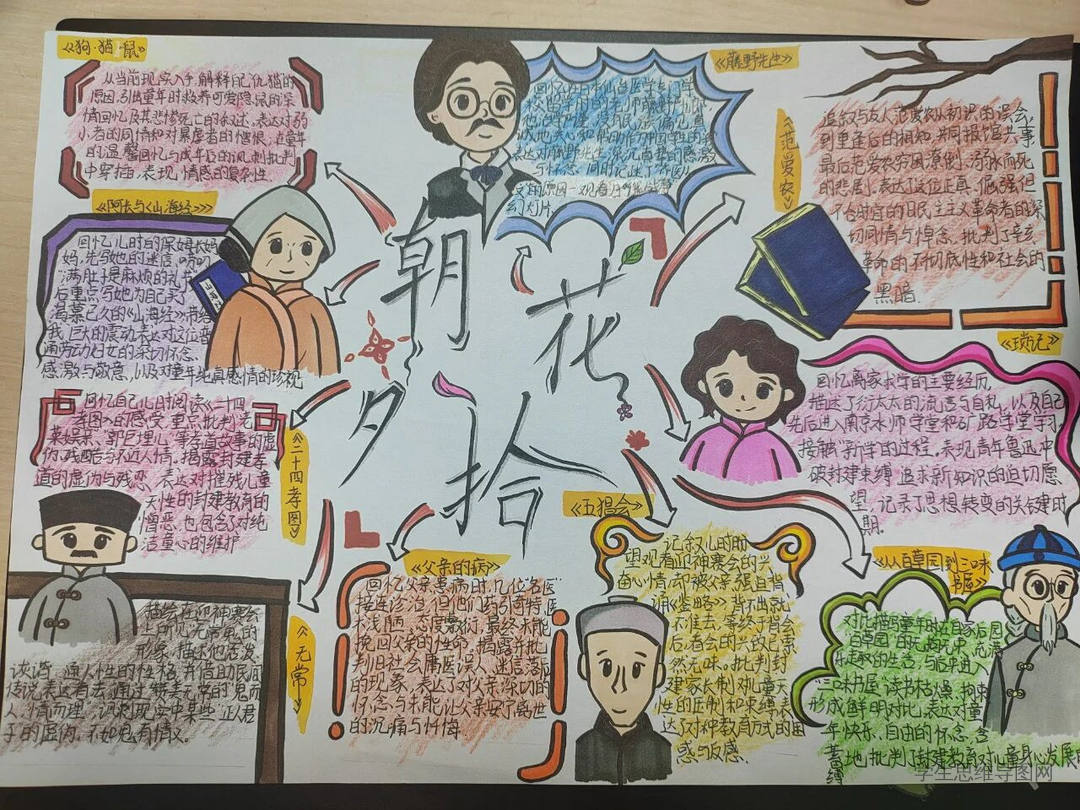 《狗·猫·鼠》
从当前现实入手,解释自己仇猫的
原因,引出童年时救养可爱隐鼠的深
情回忆及其悲惨死亡的叙述,表达对弱
小者的同情和对暴虐者的憎恨,在童年
的温馨回忆与成年后的讽刺批判
中穿插,表现情感的复杂性
《阿长与《山海经》》
回忆儿时的保姆长妈
妈,先写她的迷信、唠叨
"满肚子是麻烦的礼节"
后重点写她为自己买了
渴慕已久的《山海经》书给
我巨大的震动,表达对这位普
通劳动妇女的深切怀念、
感激与敬意,以及对童年纯真感情的珍视
回忆自己儿时阅读《二十四
孝图》的感受,重点批判"老
莱娱亲""郭巨埋儿"等孝道故事的虚
伪、残酷与不近人情。揭露封建孝
道的虚伪与残忍,表达对摧残儿童
天性的封建教育的
憎恶,也包含了对纯
洁童心的维护
《二十四孝图》
描绘在迎神赛会
上的"活无常"的
形象,描述他活泼
诙谐、通人性的性格,并借助民间
传说,表达
人,情而理,讽刺现实中某些"正人君
子"的虚伪,不如鬼有情义。
《无常》
《父亲的病》
回忆父亲患病时,几位"名医"
接连诊治,但他们药引奇特、医
术浅陋、态度敷衍,最终未能
挽回父亲的性命,揭露并批
判旧社会庸医误人、迷信落后
的现象,表达了对父亲深切的
怀念与未能让父亲安宁离世
的沉痛与忏悔
朝
花
夕
拾
《藤野先生》
表达对藤野先生
与怀念,同时记述了弃医
从文的原因—观看"日俄战争
幻灯片"
《范爱农》
追叙与友人范爱农从初识的误会,
到重逢后的相知,共同报馆共事,
最后范爱农穷困潦倒、溺水而死
的悲剧,表达了这位正直、倔强但
不合时宜的旧民主主义革命者的深
切同情与悼念,批判了辛亥
革命的不彻底性和社会的
黑暗.
《琐记》
回忆离家求学的主要经历,
描述了衍太太的流言与自私,以及自己
先后进入南京水师学堂和矿路学堂学习,
接触"新学"的过程。表现青年鲁迅冲
破封建束缚,追求新知识的迫切愿
望,记录了思想转变的关键时
期.
《五猖会》
记叙儿时盼
望观看迎神赛会的兴
奋心情,却被父亲强迫背
诵《鉴略》,背不出就
不准去,等终于背会
后赛会的兴致已索
然无味。批判封
建家长制对儿童天
性的压制和束缚,表
达了对种教育方式的困
惑与反感.
《从百草园到三味
书屋》
对比描写童年时在自家后园
"百草园"的无忧无虑、充满
乐趣的生活,与后来进入
"三味书屋"读书枯燥、拘束
形成鲜明对比,表达对童
年快乐、自由的怀念,含
蓄地批判了封建教育对儿童身心发展的
缚
学生思维导图网